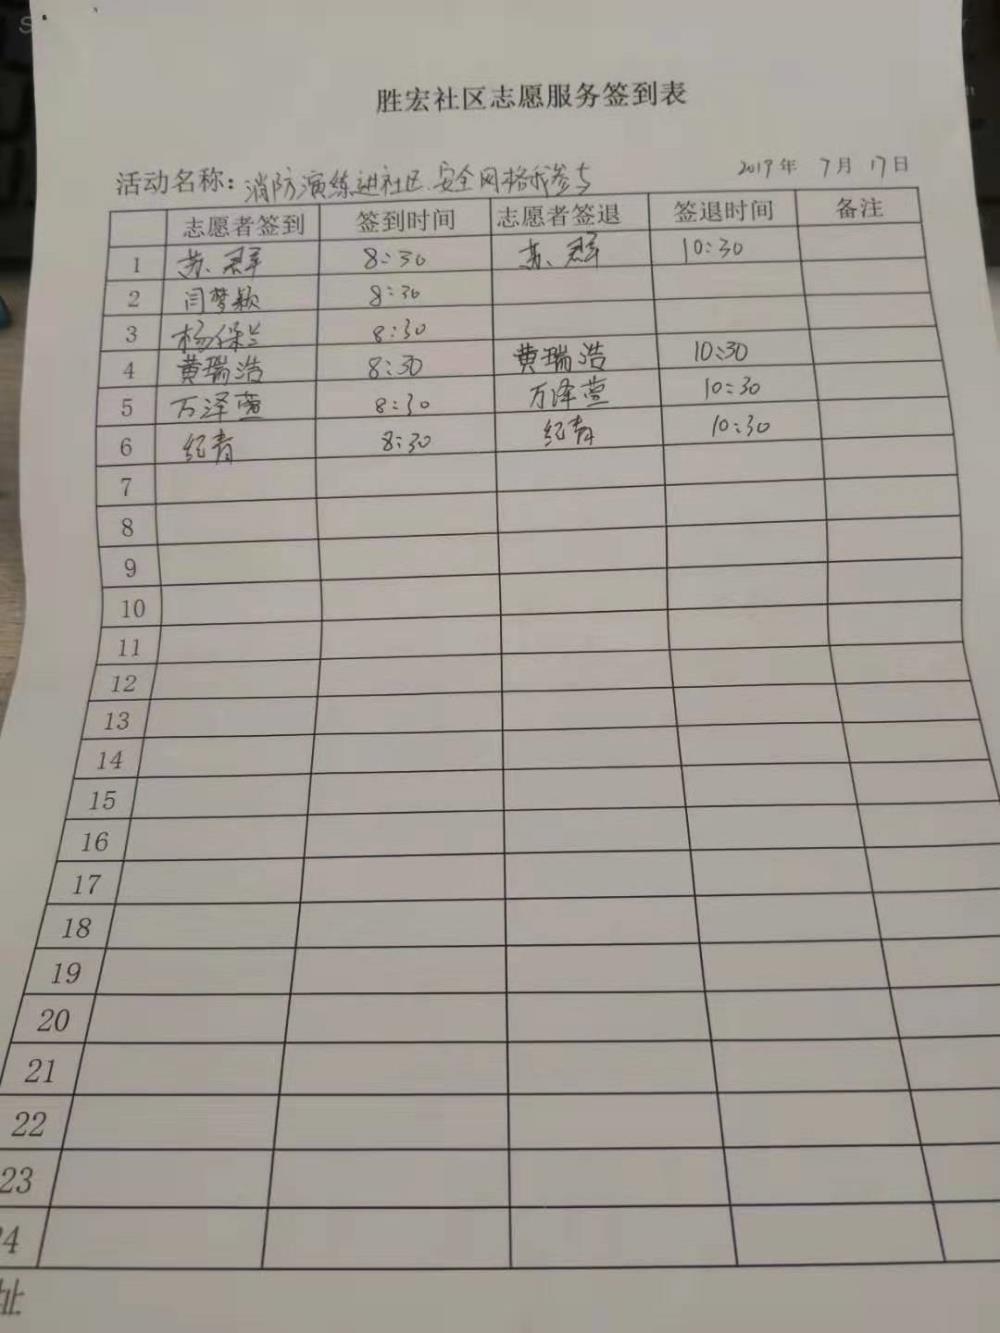 胜宏社区志愿服务签到表
活动名称：消防演练进社区、安全网格我参与 2019年 7月 17日
志愿者签到 签到时间 志愿者签退 签退时间 备注
1 苏群 8:30 苏群 10:30
2 闫梦颖 8:30
3 杨保兰 8:30
4 黄瑞浩 8:30 黄瑞浩 10:30
5 万泽萱 8:30 万泽萱 10:30
6 纪青 8:30 纪青 10:30
7
8
9
10
11
12
13
14
15
16
17
18
19
20
21
22
23
24